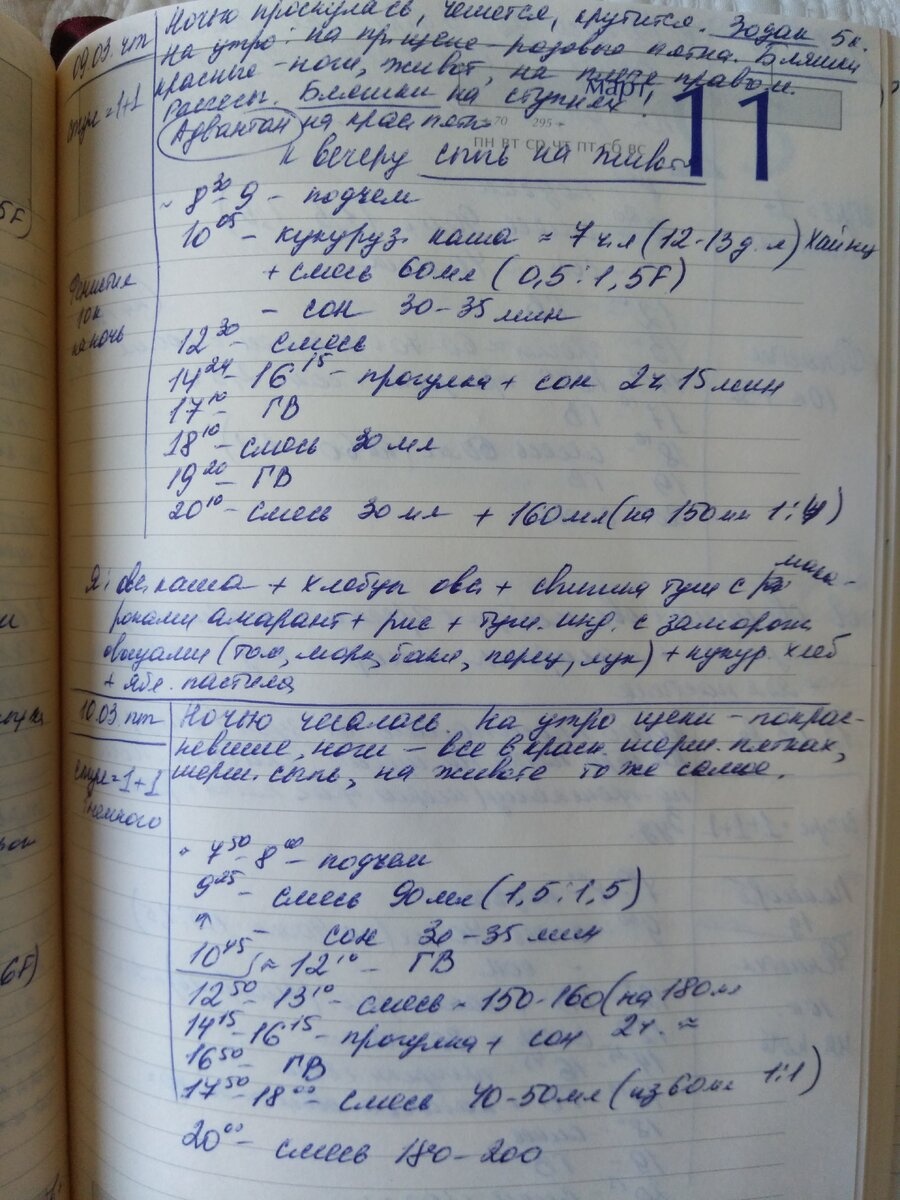 09.03. чт
Ночью проснулась, чешется, крутится. Зодак 5к.
на утро: на пр. щеке розовые пятна. Бляшки
красные - ноги, живот, на плече правом.
Расчесы. Бляшки на ступнях!
Адвантан на крас. пятн
к вечеру сыпь на животе
стул = 1+1
Март
11
70 295
ПН ВТ СР ЧТ ПТ СБ ВС
~ 8³⁰-9 - подъем
10⁰⁵ - кукуруз. каша ≈ 7 ч.л (12-13 д.л) Хайнц
+ смесь 60мл (0,5:1,5F)
- сон 30-35 мин
Фенистил
10к
на ночь
12³⁰ - смесь
14²⁴ - 16¹⁵ - прогулка + сон 2ч 15мин
17¹⁰ - ГВ
18¹⁰ - смесь 30мл
19²⁰ - ГВ
20¹⁰ - смесь 30мл + 160мл (на 150мл 1:4)
Я: овс. каша + хлебцы овс + свинина туш с мака-
ронами амарант + рис + туш. инд. с заморож
овощами (том, морк, бакл, перец, лук) + кукур. хлеб
+ ябл. пастила
10.03 пт
Ночью чесалась. На утро щеки - покрас-
невшие, ноги - все в красн. шерш. пятнах,
шерш. сыпь, на животе тоже самое.
стул = 1+1
немного
~ 7⁵⁰ - 8⁰⁰ - подъем
9²⁵ - смесь 90мл (1,5:1,5)
- сон 30-35 мин
10⁴⁵ ≈ 12¹⁰ - ГВ
12⁵⁰ - 13¹⁰ - смесь ~ 150-160 (на 180мл
14¹⁵ - 16¹⁵ - прогулка + сон 2ч. ≈
16⁵⁰ - ГВ
17⁵⁰ - 18⁰⁰ - смесь 40-50мл (из 60мл 1:1)
20⁰⁰ - смесь 180-200
5F)
6F)